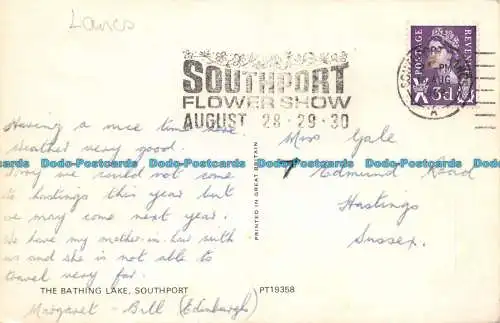 Lancs
POSTAGE
REVENUE
3d
SOUTHPORT
FLOWER SHOW
AUGUST 28·29·30
Having a nice time here
weather very good.
Sorry we could not come
to hastings this year but
we may come next year.
We have my mother-in-law with
us and she is not able to
travel very far.
Margaret - Bill (Edinburgh)
PRINTED IN GREAT BRITAIN
Miss Gale
Edmund Road
Hastings
Sussex.
THE BATHING LAKE, SOUTHPORT
PT19358
Dodo-Postcards Dodo-Postcards Dodo-Postcards Dodo-Postcards Dodo-Postcards